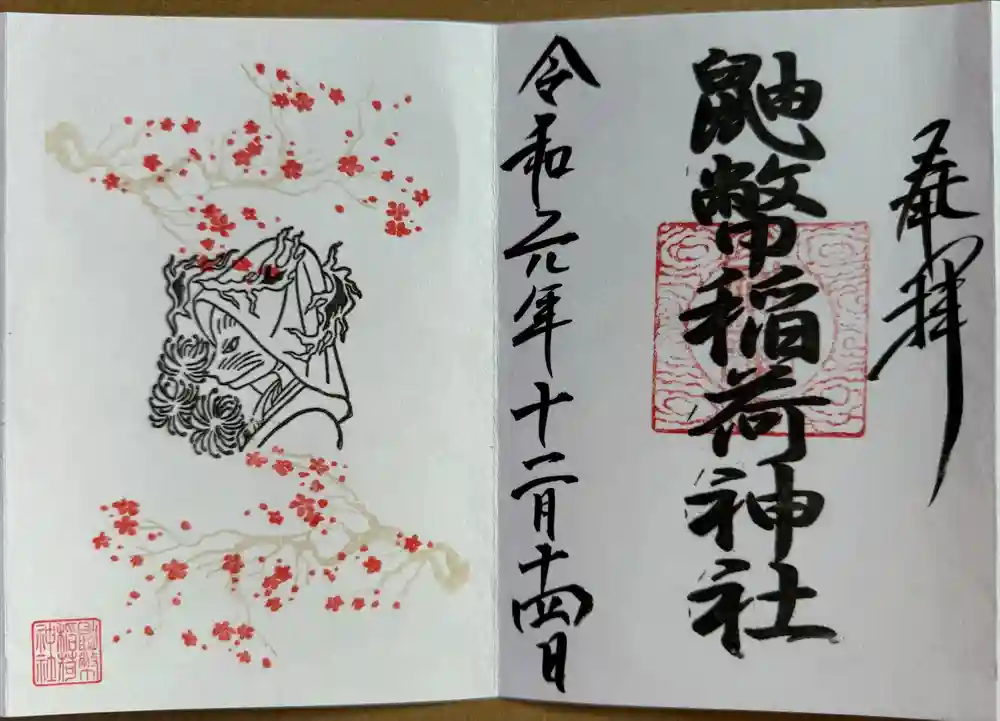 奉拝
鼬幣稲荷神社
令和元年十二月十四日
鼬幣
稲荷
神社